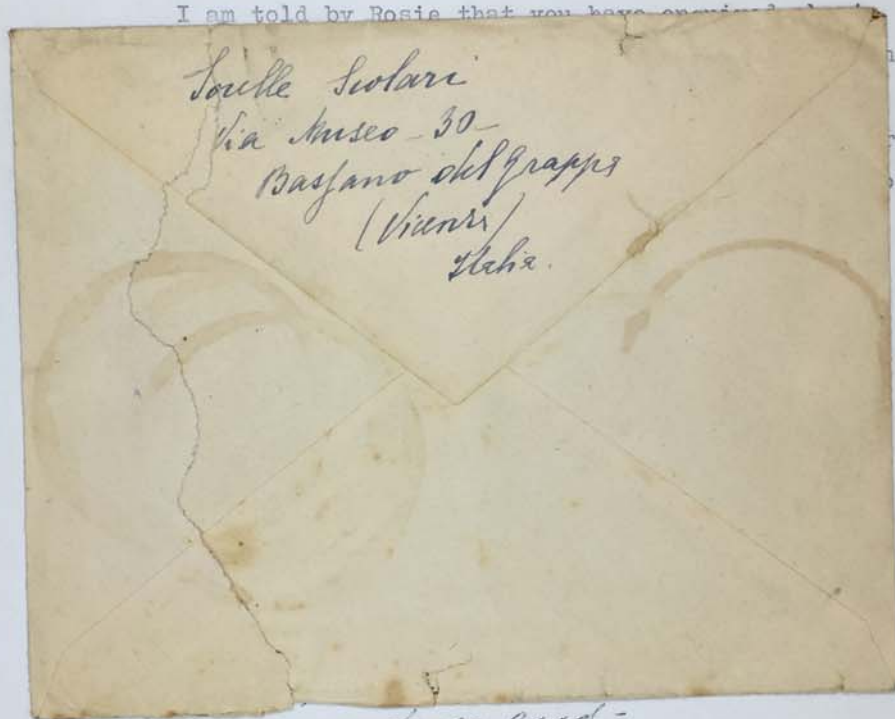 I am told by Rosie that you have enquired
Sorelle Scolari
Via Museo - 30 -
Bassano del Grappa
(Vicenza)
Italia.